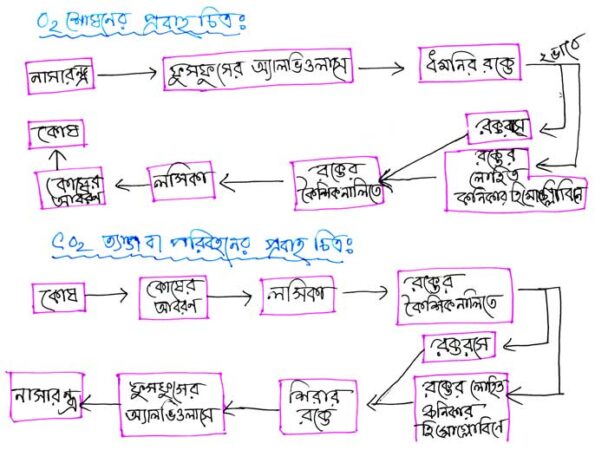 O₂ শোষনের প্রবাহ চিত্র:
নাসারন্ধ্র
ফুসফুসের অ্যালভিওলাসে
ধমনির রক্তে
২ভাবে
রক্তরসে
রক্তের
লোহিত
কনিকার হিমোগ্লোবিনে
রক্তের
কৈশিকনালিতে
লসিকা
কোষের
আবরণ
কোষ
CO₂ ত্যাগ বা পরিবহনের প্রবাহ চিত্র:
কোষ
কোষের
আবরণ
লসিকা
রক্তের
কৈশিকনালিতে
রক্তরসে
রক্তের লোহিত
কনিকার
হিমোগ্লোবিনে
শিরার
রক্তে
ফুসফুসের
অ্যালভিওলাসে
নাসারন্ধ্র